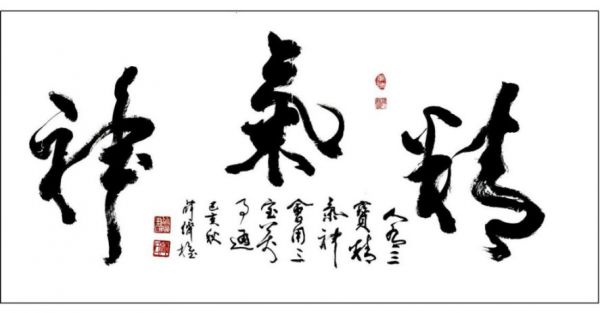 精氣神
人有三
寶精
氣神
會用三
宝萬
事通
己亥秋